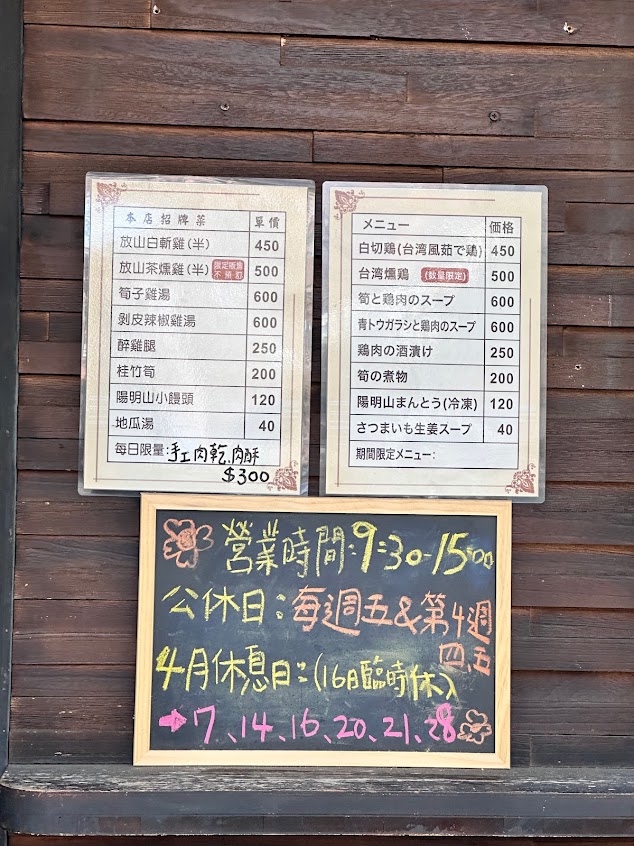 本店招牌菜 單價
放山白斬雞(半) 450
放山茶燻雞(半) 限定販售 不預訂 500
筍子雞湯 600
剝皮辣椒雞湯 600
醉雞腿 250
桂竹筍 200
陽明山小饅頭 120
地瓜湯 40
每日限量:手工肉乾、肉酥
$300
メニュー 価格
白切鶏(台湾風茹で鶏) 450
台湾燻鶏 (数量限定) 500
筍と鶏肉のスープ 600
青トウガラシと鶏肉のスープ 600
鶏肉の酒漬け 250
筍の煮物 200
陽明山まんとう(冷凍) 120
さつまいも生姜スープ 40
期間限定メニュー:
營業時間:9:30-15:00
公休日:每週五&第4週
四、五
4月休息日:(16日臨時休)
➡7、14、16、20、21、28